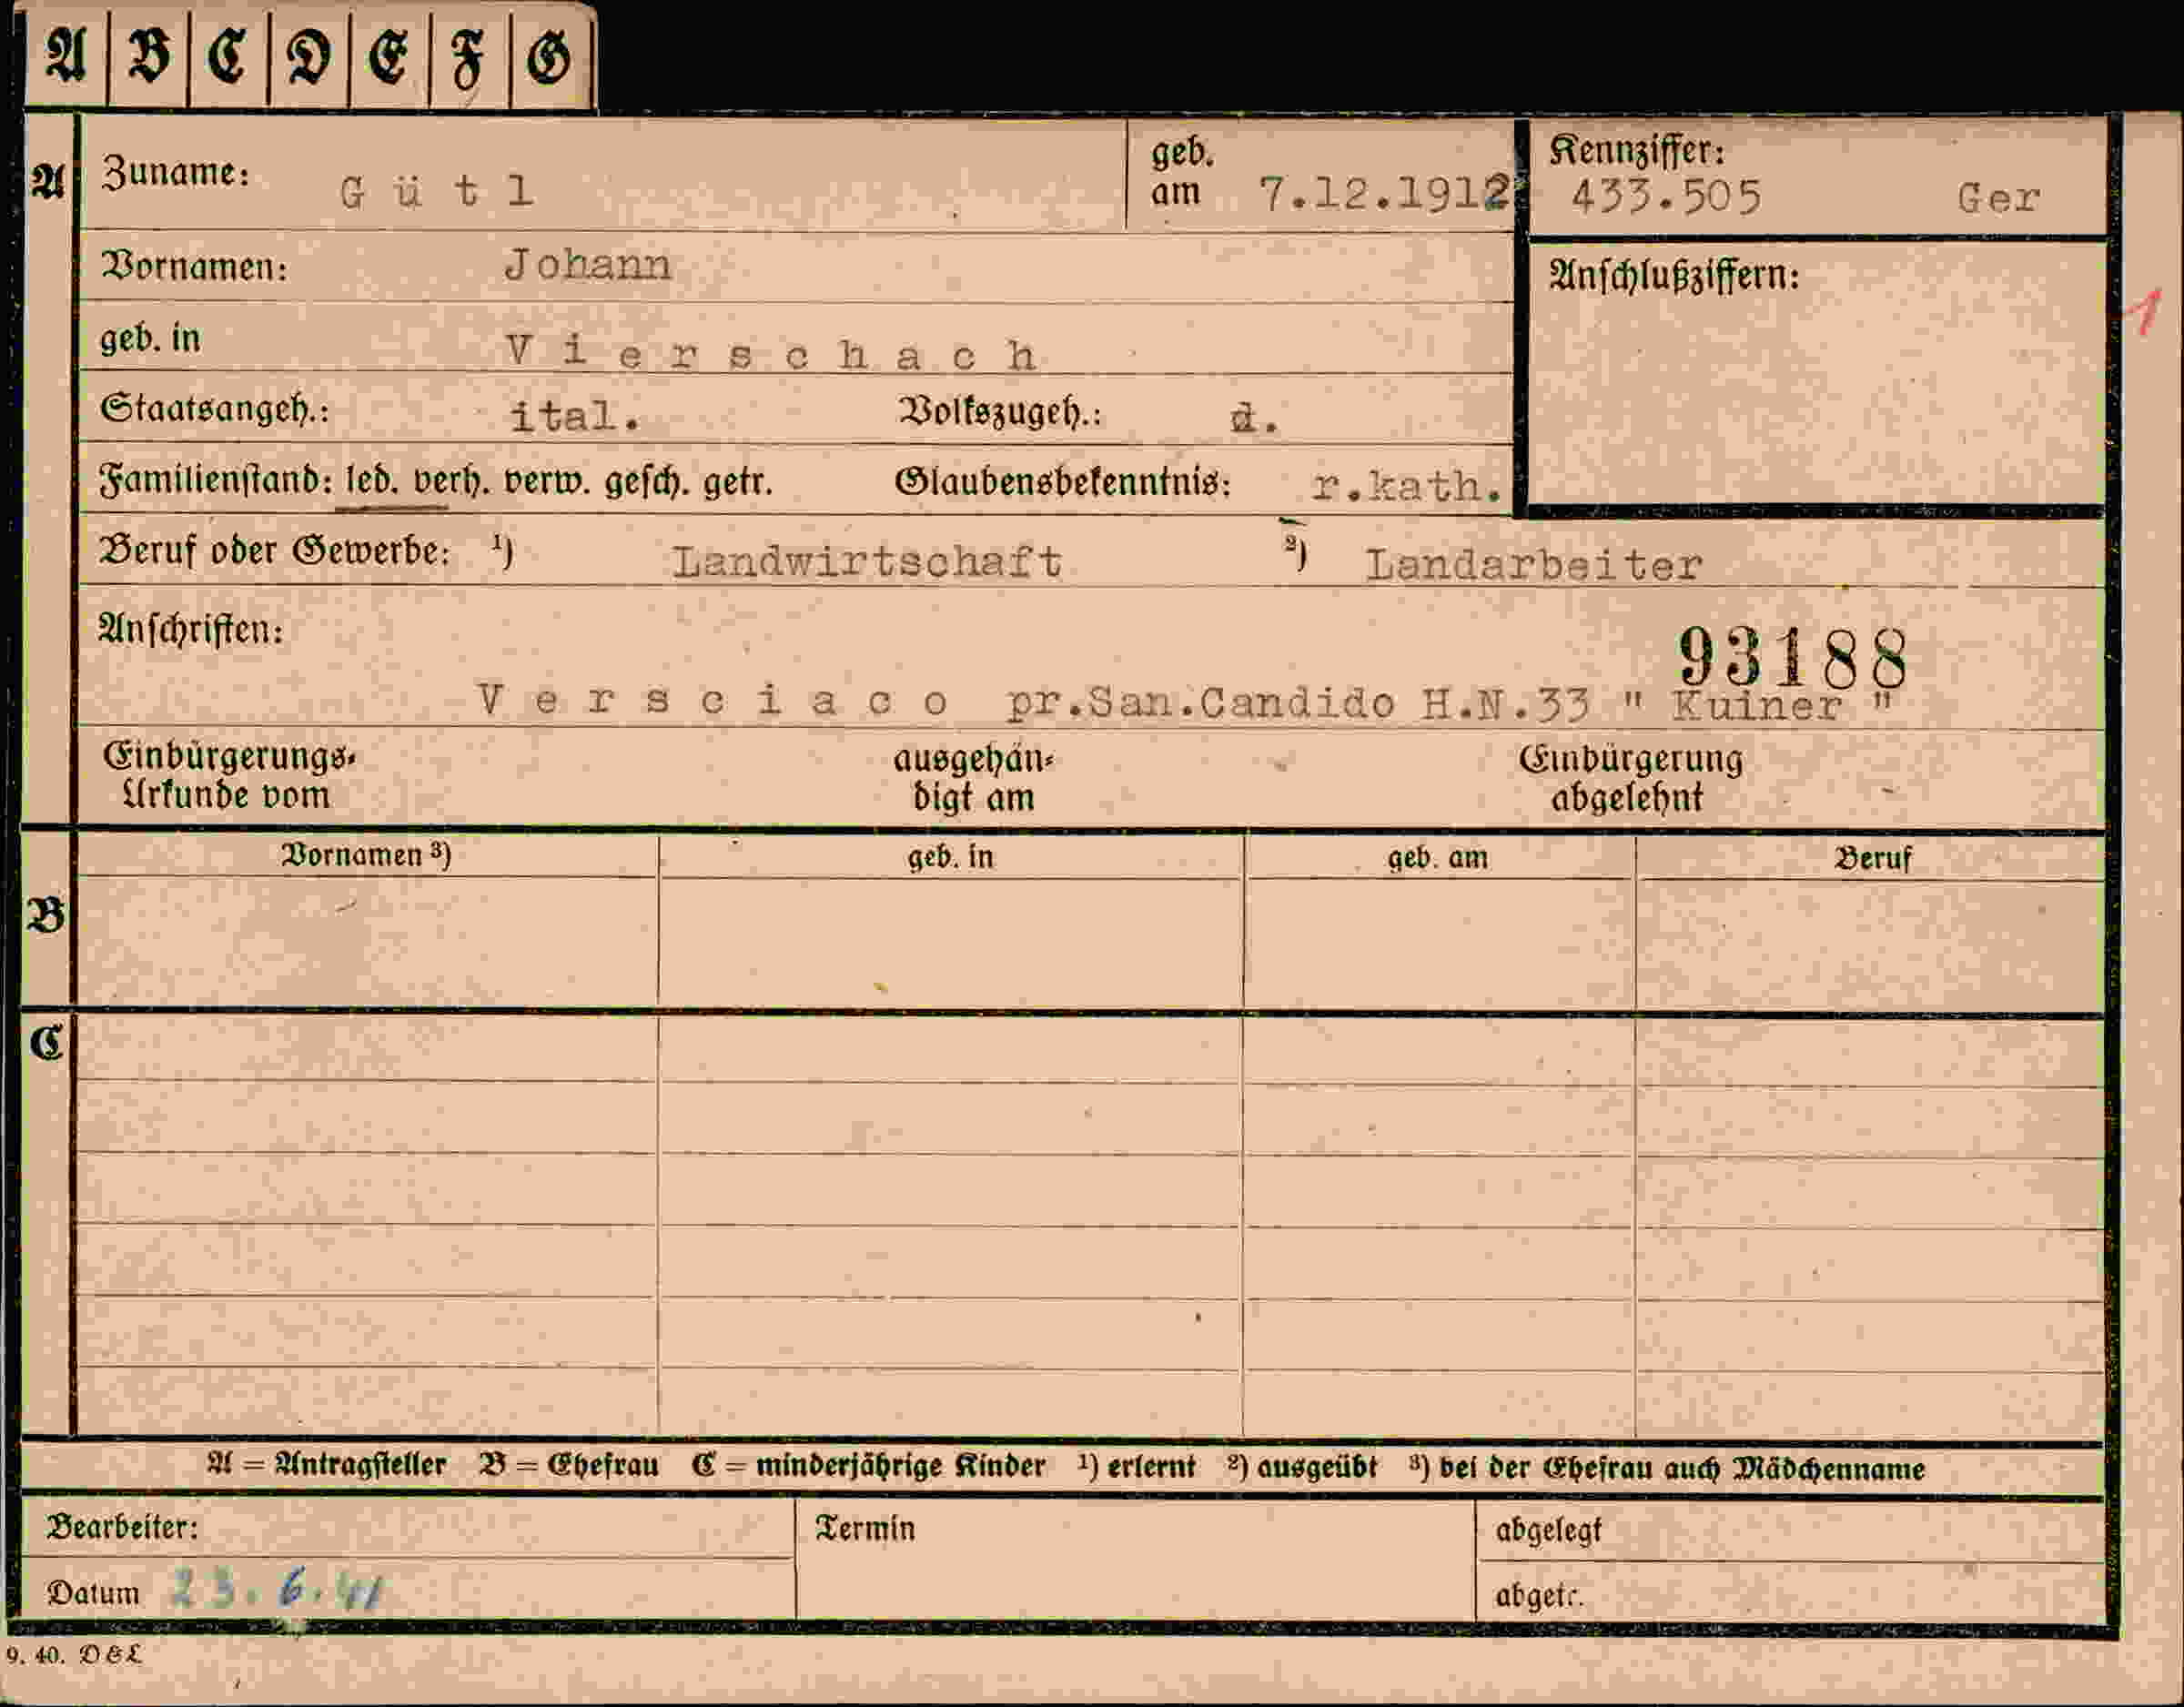 A B C D E F G
A Zuname: Gütl geb. am 7.12.1912 Kennziffer: 433.505 Ger
Vornamen: Johann Anschlußziffern:
1
geb. in Vierschach
Staatsangeh.: ital. Volkszugeh.: d.
Familienstand: led. verh. verw. gesch. getr. Glaubensbekenntnis: r.kath.
Beruf oder Gewerbe: ¹) Landwirtschaft ²) Landarbeiter
Anschriften:
93188
Versciaco pr.San.Candido H.N.33 " Kuiner "
Einbürgerungs-Urkunde vom ausgehändigt am Einbürgerung abgelehnt
Vornamen ³) geb. in geb. am Beruf
B
C
A = Antragsteller B = Ehefrau C = minderjährige Kinder ¹) erlernt ²) ausgeübt ³) bei der Ehefrau auch Mädchenname
Bearbeiter: Termin abgelegt
Datum 23.6.41 abgetr.
9. 40. D & L